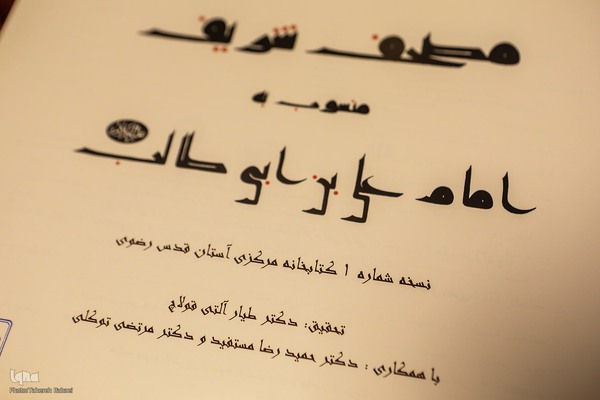 مصحف شریف
منسوب به
امام علی بن ابی طالب
نسخه شماره ۱ کتابخانه مرکزی آستان قدس رضوی
تحقیق: دکتر طیار آلتی قولاچ
با همکاری : دکتر حمید رضا مستفید و دکتر مرتضی توکلی
iqna
Photo:Tahereh Babaei